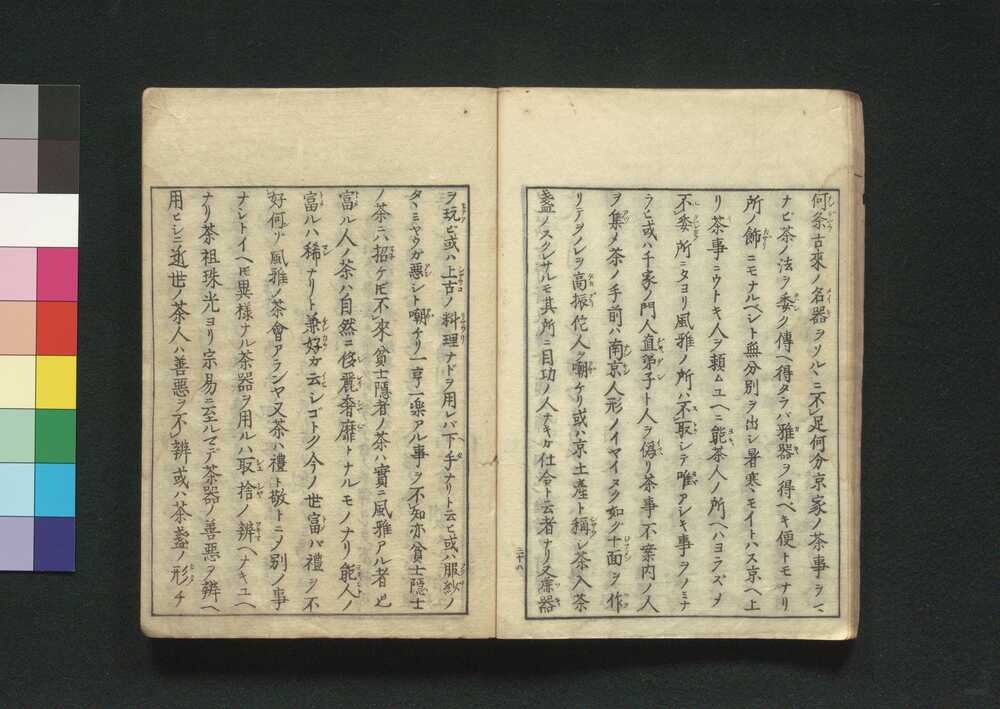 何条古來ノ名器ヲソルヽニ不足何分京家ノ茶事ヲマ
ナビ茶ノ法ヲ委ク傳ヘ得タラバ雅器ヲ得ベキ便トモナリ
所ノ飾ニモナルベシト無分別ヲ出シ暑寒ヽモイトハス京ヘ上
リ茶事ニウトキ人ヲ頼ムユヘニ能茶人ノ所ヘハヨラズヲ
不委所ニタヨリ風雅ノ所ハ不取シテ唯アシキ事ヲノミナ
ラヒ或ハ千家ノ門人直弟子ト人ヲ偽リ茶事不案内ノ人
ヲ集メ茶ノ手前ハ南京人形ノイヤイタク如ク十面ヲ作
リテヲノレヲ高振佗人ヲ嘲ケリ或ハ京土産ト稱シ茶入茶
盞ノスクレサルモ其所ニ目功ノ人ナキカ仕合ト云者ナリ又漂器
三十八
ヲ玩ビ或ハ上古ノ料理ナドヲ用レバ下手ナリト云ヒ或ハ服紗ノ
タヽミヤウガ悪シト嘲ケリ一亨一楽アル事ヲ不知亦貧士隠士
ノ茶ニハ招ケ𪜈不來貧士隠者ノ茶ハ實ニ風雅アル者也
富ル人ノ茶ハ自然ニ侈麗奢靡トナルモノナリ能人ノ
富ルハ稀ナリト兼好ガ云シゴトク今ノ世富ハ禮ヲ不
好何ソ風雅ノ茶會アランヤ又茶ハ禮ト敬トニノ別ノ事
ナシトイヘ𪜈異様ナル茶器ヲ用ルハ取捨ノ辨ヘナキユヘ
ナリ茶祖珠光ヨリ宗易ニ至ルマデ茶器ノ善悪ヲ辨ヘ
用ヒシニ近世ノ茶人ハ善悪ヲ不辨或ハ茶盞ノ形チ